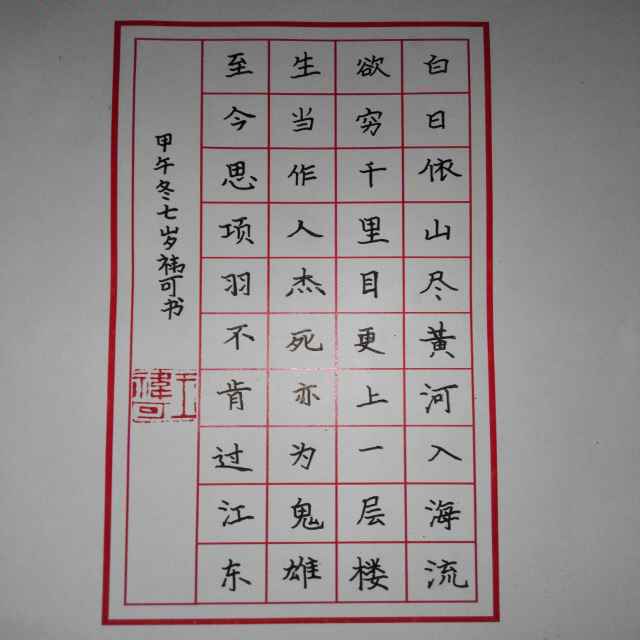 白日依山尽黄河入海流
欲穷千里目更上一层楼
生当作人杰死亦为鬼雄
至今思项羽不肯过江东
甲午冬七岁祎可书